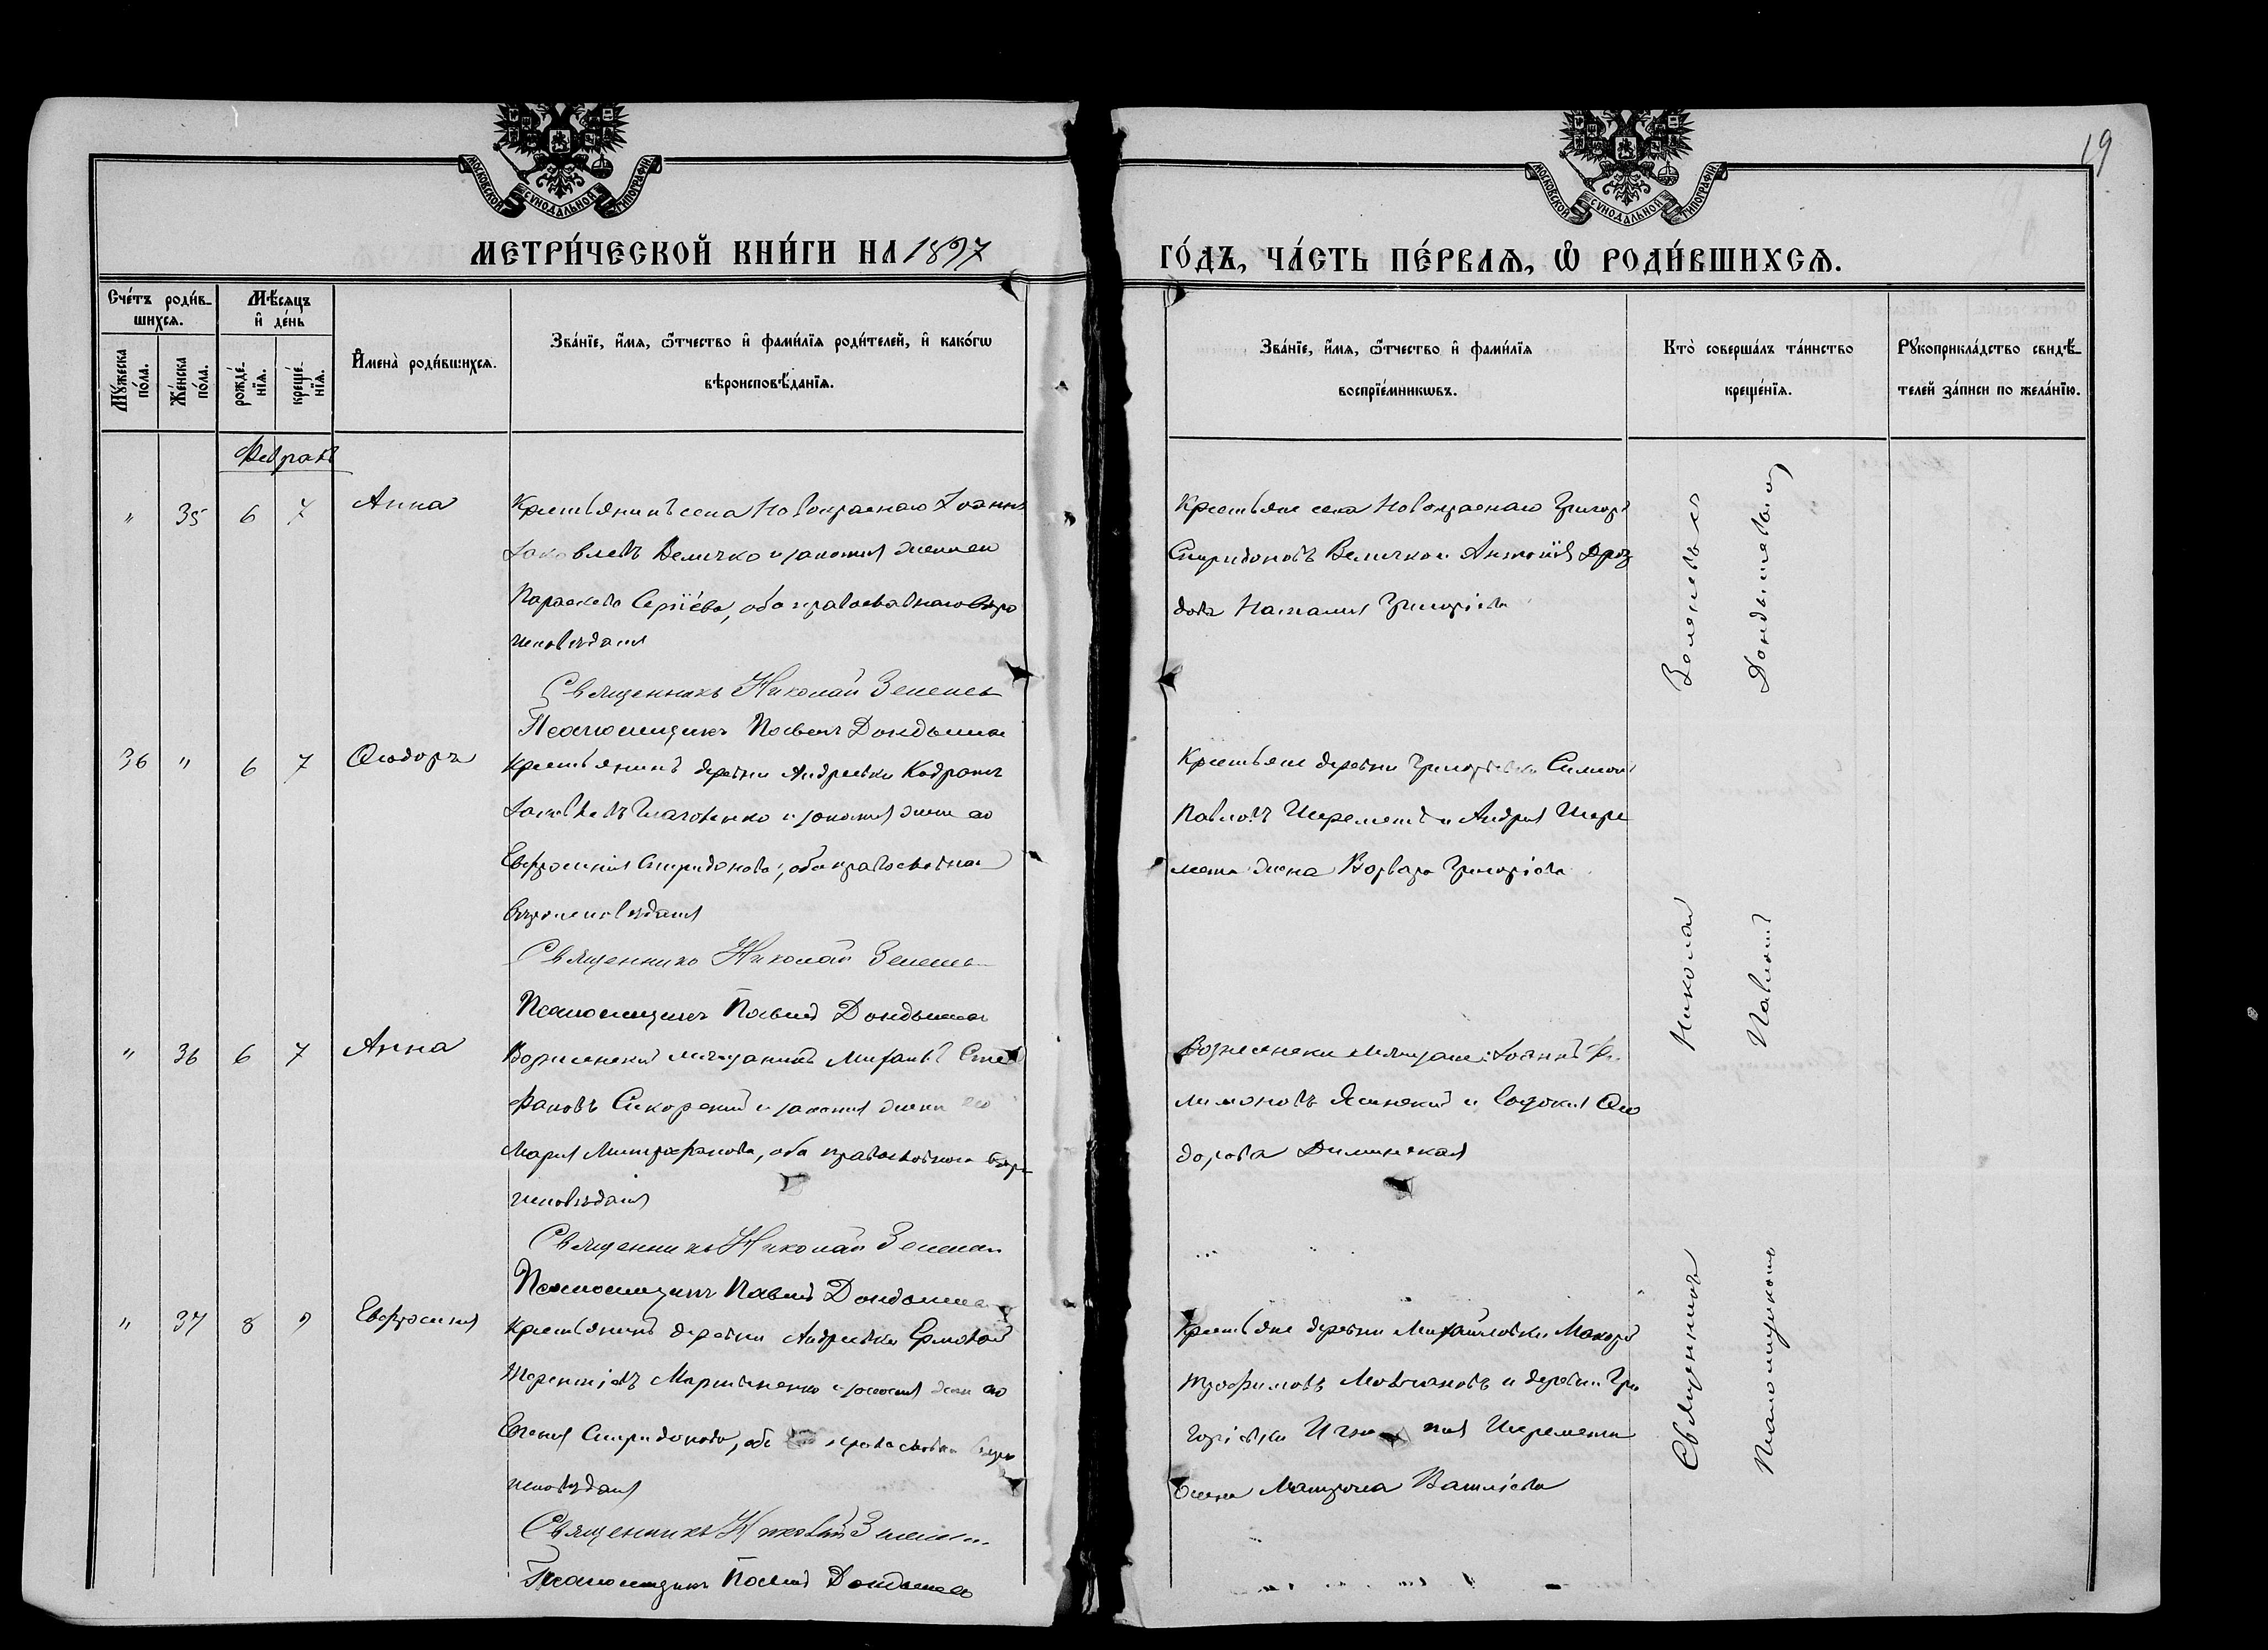 19
МОСКОВСКОЙ СУНОДАЛЬНОЙ ТИПОГРАФІИ
МОСКОВСКОЙ СУНОДАЛЬНОЙ ТИПОГРАФІИ
МЕТРИ́ЧЕСКОЙ КНИ́ГИ НА 1897
ГО́ДЪ, ЧА́СТЬ ПЕ́РВАѦ, Ѽ РОДИ́ВШИХСѦ.
Сче́тъ роди́в-
шихсѧ.
Мꙋ́жеска по́ла.
Же́нска по́ла.
Мѣ́сѧцъ
и҆ де́нь
рожде́-
нїѧ.
креще́-
нїѧ.
И҆мена̀ роди́вшихсѧ.
Зва́нїе, и҆́мѧ, ѻ҆́тчество и҆ фами́лїѧ роди́телей, и҆ како́гѡ
вѣроисповѣ́данїѧ.
Зва́нїе, и҆́мѧ, ѻ҆́тчество и҆ фами́лїѧ
воспрїе́мникѡвъ.
Кто̀ соверша́лъ та́инство
креще́нїѧ.
Рꙋкоприкла́дство свидѣ́-
телей за́писи по жела́нїю.
Февраль
" 35 6 7 Анна
Крестьянинъ села Новокраснаго Іоаннъ
Іаковлевъ Величко и законная жена его
Параскева Сергіева, оба православнаго вѣро
исповѣданія
Священникъ Николай Зеленев
Псаломщикъ Павелъ Дондыша
Крестьяне села Новокраснаго Григорій
Спиридоновъ Величко и Антонія Дроз
дова Наталия Григоріева
36 " 6 7 Ѳеодоръ
Крестьянинъ деревни Андреевки Кодратъ
Іаковлевъ и законная жена его
Евфросинія Спиридонова, оба православнаго
вѣроисповѣданія
Священникъ Николай Зеленев
Псаломщикъ Павелъ Дондыша
Крестьяне деревни Григорьевки Симеонъ
Павловъ Шереметъ и Андрея Шере
мета жена Варвара Григоріева
" 36 6 7 Анна
Вознесенский мѣщанинъ Михаилъ Сте
фановъ Сикорский и законная жена его
Мария Митрофанова, оба православнаго вѣро
исповѣданія
Священникъ Николай Зеленев
Псаломщикъ Павелъ Дондыша
Вознесенски мѣщане: Іоаннъ Фи
лимоновъ Ясинский и Евдокия Ѳео
дорова
" 37 8 9 Евфросинія
Крестьянинъ деревни Андреевки Ермолай
Терентіевъ Мартиненко и законная жена его
Евгения Спиридонова, оба православнаго вѣро
исповѣданія
Священникъ Николай Зеленев
Псаломщикъ Павелъ Дондыша
Крестьяне деревни Михайловки Макарій
Трофимовъ Мовчановъ и деревни Гри
горіевки Шеремета
жена Матрона Василіева
Священникъ Николай Зеленевъ
Псаломщикъ Павелъ Дондышевъ